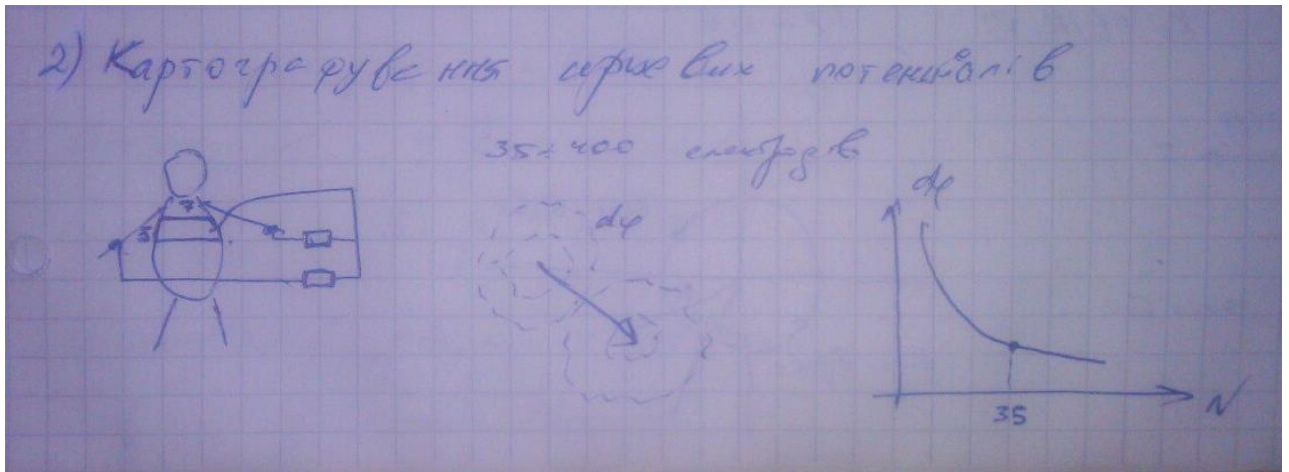 2) Картографування шрхових потенціалів
35÷400 електродів
dφ
dφ
7
5
35
N